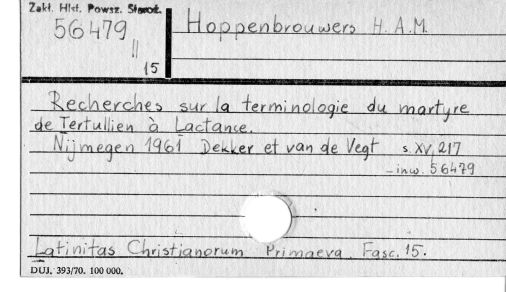 Zakł. Hist. Powsz. Staroż.
56479
||
15
Hoppenbrouwers H.A.M.
Recherches sur la terminologie du martyre
de Tertullien à Lactance.
Nijmegen 1961 Dekker et van de Vegt s. XV, 217
- inw. 56479
Latinitas Christianorum Primaeva. Fasc. 15.
DUJ. 393/70. 100 000.